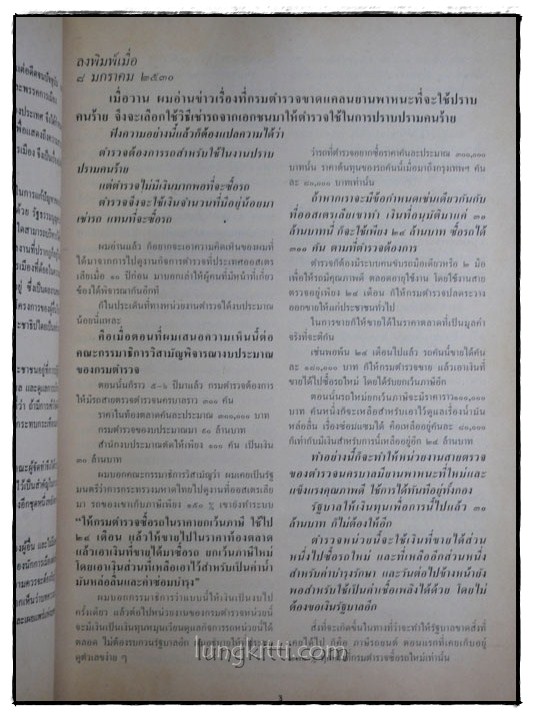 ลงพิมพ์เมื่อ
๘ มกราคม ๒๕๓๐
เมื่อวาน ผมอ่านข่าวเรื่องที่กรมตำรวจขาดแคลนยานพาหนะที่จะใช้ปราบ
คนร้าย จึงจะเลือกใช้วิธีเช่ารถจากเอกชนมาให้ตำรวจใช้ในการปราบปรามคนร้าย
ฟังความอย่างนี้แล้วก็ต้องแปลความได้ว่า
ตำรวจต้องการรถสำหรับใช้ในงานปราบ
ปรามคนร้าย
แต่ตำรวจไม่มีเงินมากพอที่จะซื้อรถ
ตำรวจจึงจะใช้เงินจำนวนที่มีอยู่น้อยมา
เช่ารถ แทนที่จะซื้อรถ
ผมอ่านแล้ว ก็อยากจะเอาความคิดเห็นของผมที่
ได้มาจากการไปดูงานกิจการตำรวจที่ประเทศออสเตร
เลียเมื่อ ๑๐ ปีก่อน มาบอกเล่าให้ผู้คนที่มีหน้าที่เกี่ยว
ข้องได้พิจารณากันอีกที
ก็ในประเด็นที่ทางหน่วยงานตำรวจได้งบประมาณ
น้อยนี่แหละ
คือเมื่อตอนที่ผมเสนอความเห็นนี้ต่อ
คณะกรรมาธิการวิสามัญพิจารณางบประมาณ
ของกรมตำรวจ
ตอนนั้นก็ราว ๕-๖ ปีมาแล้ว กรมตำรวจต้องการ
ให้มีรถสายตรวจตำรวจนครบาลราว ๓๐๐ คัน
ราคาในท้องตลาดคันละประมาณ ๓๐๐,๐๐๐ บาท
กรมตำรวจของบประมาณมา ๙๐ ล้านบาท
สำนักงบประมาณตัดให้เพียง ๑๐๐ คัน เป็นเงิน
๓๐ ล้านบาท
ผมบอกคณะกรรมาธิการวิสามัญว่า ผมเคยเป็นรัฐ
มนตรีว่าการกระทรวงมหาดไทยไปดูงานที่ออสเตรเลีย
มา รถของเขาเก็บภาษีเพียง ๑๕๐ % เขายังทำระบบ
“ให้กรมตำรวจซื้อรถในราคายกเว้นภาษี ใช้ไป
๒๔ เดือน แล้วให้ขายไปในราคาท้องตลาด
แล้วเอาเงินที่ขายได้มาซื้อรถ ยกเว้นภาษีใหม่
โดยเอาเงินส่วนที่เหลือเอาไว้สำหรับเป็นค่าน้ำ
มันหล่อลื่นและค่าซ่อมบำรุง”
ผมบอกกรรมาธิการว่าวางแบบนี้ให้เงินเป็นงบไป
ครั้งเดียว แล้วต่อไปหน่วยงานของกรมตำรวจหน่วยนี้
จะมีเงินเป็นเงินทุนหมุนเวียนดูแลกิจการรถหน่วยนี้ได้
ตลอด ไม่ต้องรบกวนรัฐบาลอีก
ดูตัวเลขง่าย ๆ
ว่ารถที่ตำรวจอยากซื้อราคาคันละประมาณ ๓๐๐,๐๐๐
บาทนั้น ราคาต้นทุนของรถคันนี้เมื่อมาถึงกรุงเทพฯ คัน
ละ ๘๐,๐๐๐ บาทเท่านั้น
ถ้าหากเราจะมีข้อกำหนดเช่นเดียวกันกับ
ที่ออสเตรเลียเขาทำ เงินที่อนุมัติมาแค่ ๓๐
ล้านบาทนี้ ก็จะใช้เพียง ๒๔ ล้านบาท ซื้อรถได้
๓๐๐ คัน ตามที่ตำรวจต้องการ
ตำรวจก็ต้องมีระบบคนขับรถมือเดียวหรือ ๒ มือ
เพื่อให้รถมีคุณภาพดี ตลอดอายุใช้งาน โดยใช้งานสาย
ตรวจอยู่เพียง ๒๔ เดือน ก็ให้กรมตำรวจปลดระวาง
ออกขายให้แก่ประชาชนทั่วไป
ในการขายก็ให้ขายได้ในราคาตลาดที่เป็นมูลค่า
จริงที่จะดีคัน
เช่นพอพ้น ๒๔ เดือนไปแล้ว รถคันนี้ขายได้คัน
ละ ๑๒๐,๐๐๐ บาท ก็ให้ตำรวจขาย แล้วเอาเงินที่
ขายได้ไปซื้อรถใหม่ โดยได้รับยกเว้นภาษีอีก
ตอนนั้นรถใหม่ยกเว้นภาษีจะมีราคาราว๑๐๐,๐๐๐
บาท คันหนึ่งก็จะเหลือสำหรับเอาไว้ดูแลเรื่องน้ำมัน
หล่อลื่น เรื่องซ่อมแซมได้ คือเหลืออยู่คันละ ๘๐,๐๐๐
ก็เท่ากับมีเงินสำหรับการนี้เหลืออยู่อีก ๒๔ ล้านบาท
ทำอย่างนี้ก็จะทำให้หน่วยงานสายตรวจ
ของตำรวจนครบาลมียานพาหนะที่ใหม่และ
แข็งแรงคุณภาพดี ใช้การได้ทันทีอยู่ทั้งกอง
รัฐบาลให้เงินทุนเพื่อการนี้ไปแล้ว ๓๐
ล้านบาท ก็ไม่ต้องให้อีก
ตำรวจหน่วยนี้จะใช้เงินที่ขายได้ส่วน
หนึ่งไปซื้อรถใหม่ และที่เหลืออีกส่วนหนึ่ง
สำหรับค่าบำรุงรักษา และวันต่อไปข้างหน้ายัง
พอสำหรับใช้เป็นค่าเชื้อเพลิงได้ด้วย โดยไม่
ต้องขอเงินรัฐบาลอีก
สิ่งที่จะเกิดขึ้นในทางที่ว่าจะทำให้รัฐบาลขาดสิ่งที่
เคยได้ไป ก็คือ ภาษีรถยนต์ ตอนแรกที่เคยเก็บอยู่
ที่กรมตำรวจซื้อรถใหม่เท่านั้น
lungkitti.com
3